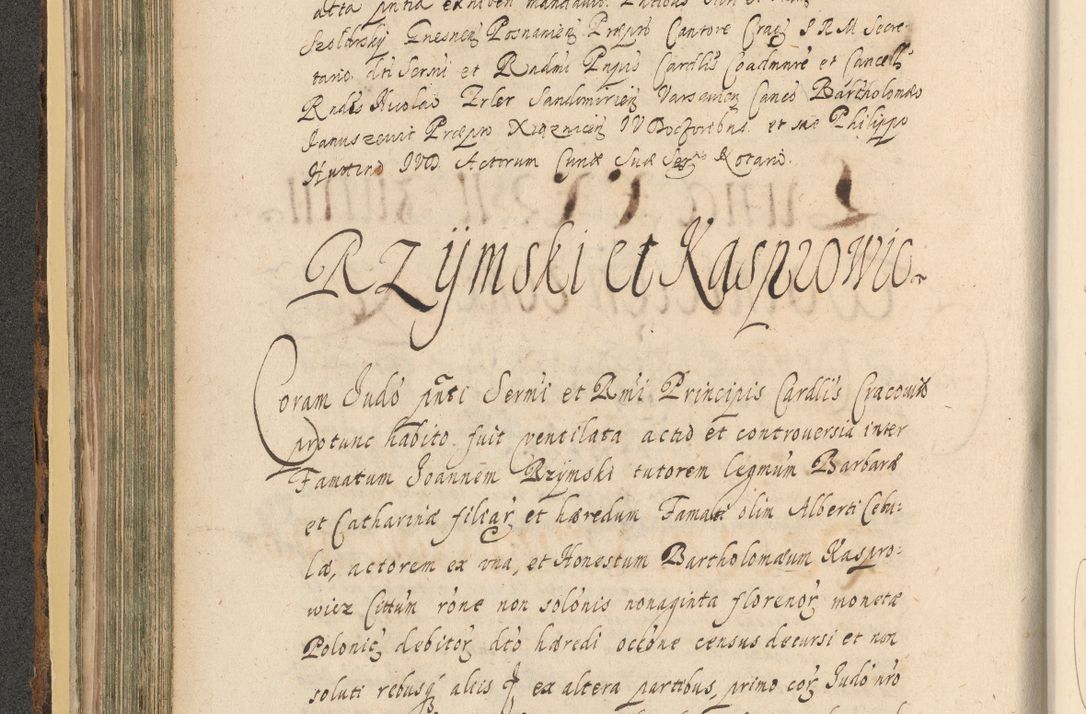 Szoldrsky Gnesnen Posnanien Praepto Cantore Crac S R M Secre-
tario dti Sermi et Rndmi Pnpis Cardlis Coadnnre et Cancell
Rndis Nicolao Erler Sandomirien Varsavien Canco Bartholomaeo
Januszewic Praepto Xiąznicen IV Doctoribus et me Philippo
Huttini JVD Actorum Curiae Suae Sermae Notario.
Rzÿmski et Kasprowic
Coram Judo pnti Sermi et Rmi Principis Cardlis Cracowie
protunc habito fuit ventilata actio et controversia inter
Famatum Joannem Rzÿmski tutorem legmum Barbarae
et Catharinae filiar et haeredum Famati olim Alberti Cebu:
lae, actorem ex una, et Honestum Bartholomaeum Kaspro:
wicz Cittum rone non solonis nonaginta florenor monetae
Polonic debitor dto haeredi occone census decursi et non
soluti rebusq aliis ex altera partibus, primo cor Judo nro